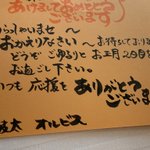 あけましておめでとう
ございます
いらっしゃいませ～
おかえりなさい～ お待ちしており
どうぞ ごゆるりと お正月
お過ごし下さい。
いつも 応援を ありがとう
ございま
オルビス